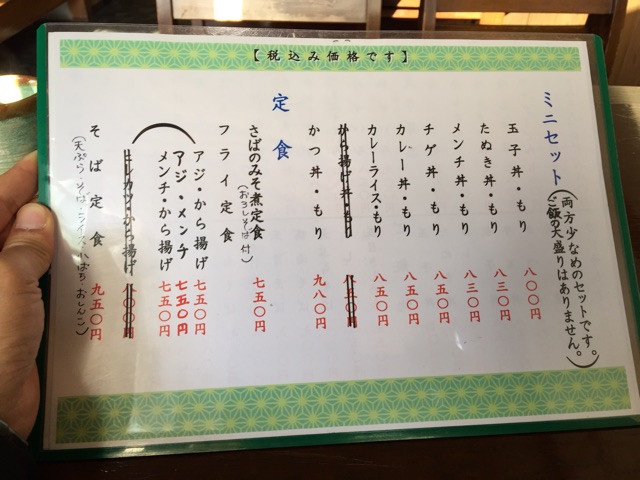 【税込み価格です】
ミニセット
(両方少なめのセットです。
ご飯の大盛りはありません。)
玉子丼・もり 八〇〇円
たぬき丼・もり 八三〇円
メンチ丼・もり 八三〇円
チゲ丼・もり 八五〇円
カレー丼・もり 八五〇円
カレーライス・もり 八五〇円
から揚げ丼・もり
かつ丼・もり 九八〇円
定食
さばのみそ煮定食 七五〇円
(おろしそば付)
フライ定食
アジ・から揚げ 七五〇円
アジ・メンチ 七五〇円
メンチ・から揚げ 七五〇円
そば定食 九五〇円
(天ぷら・そば・ライス・小ばち・おしんこ)